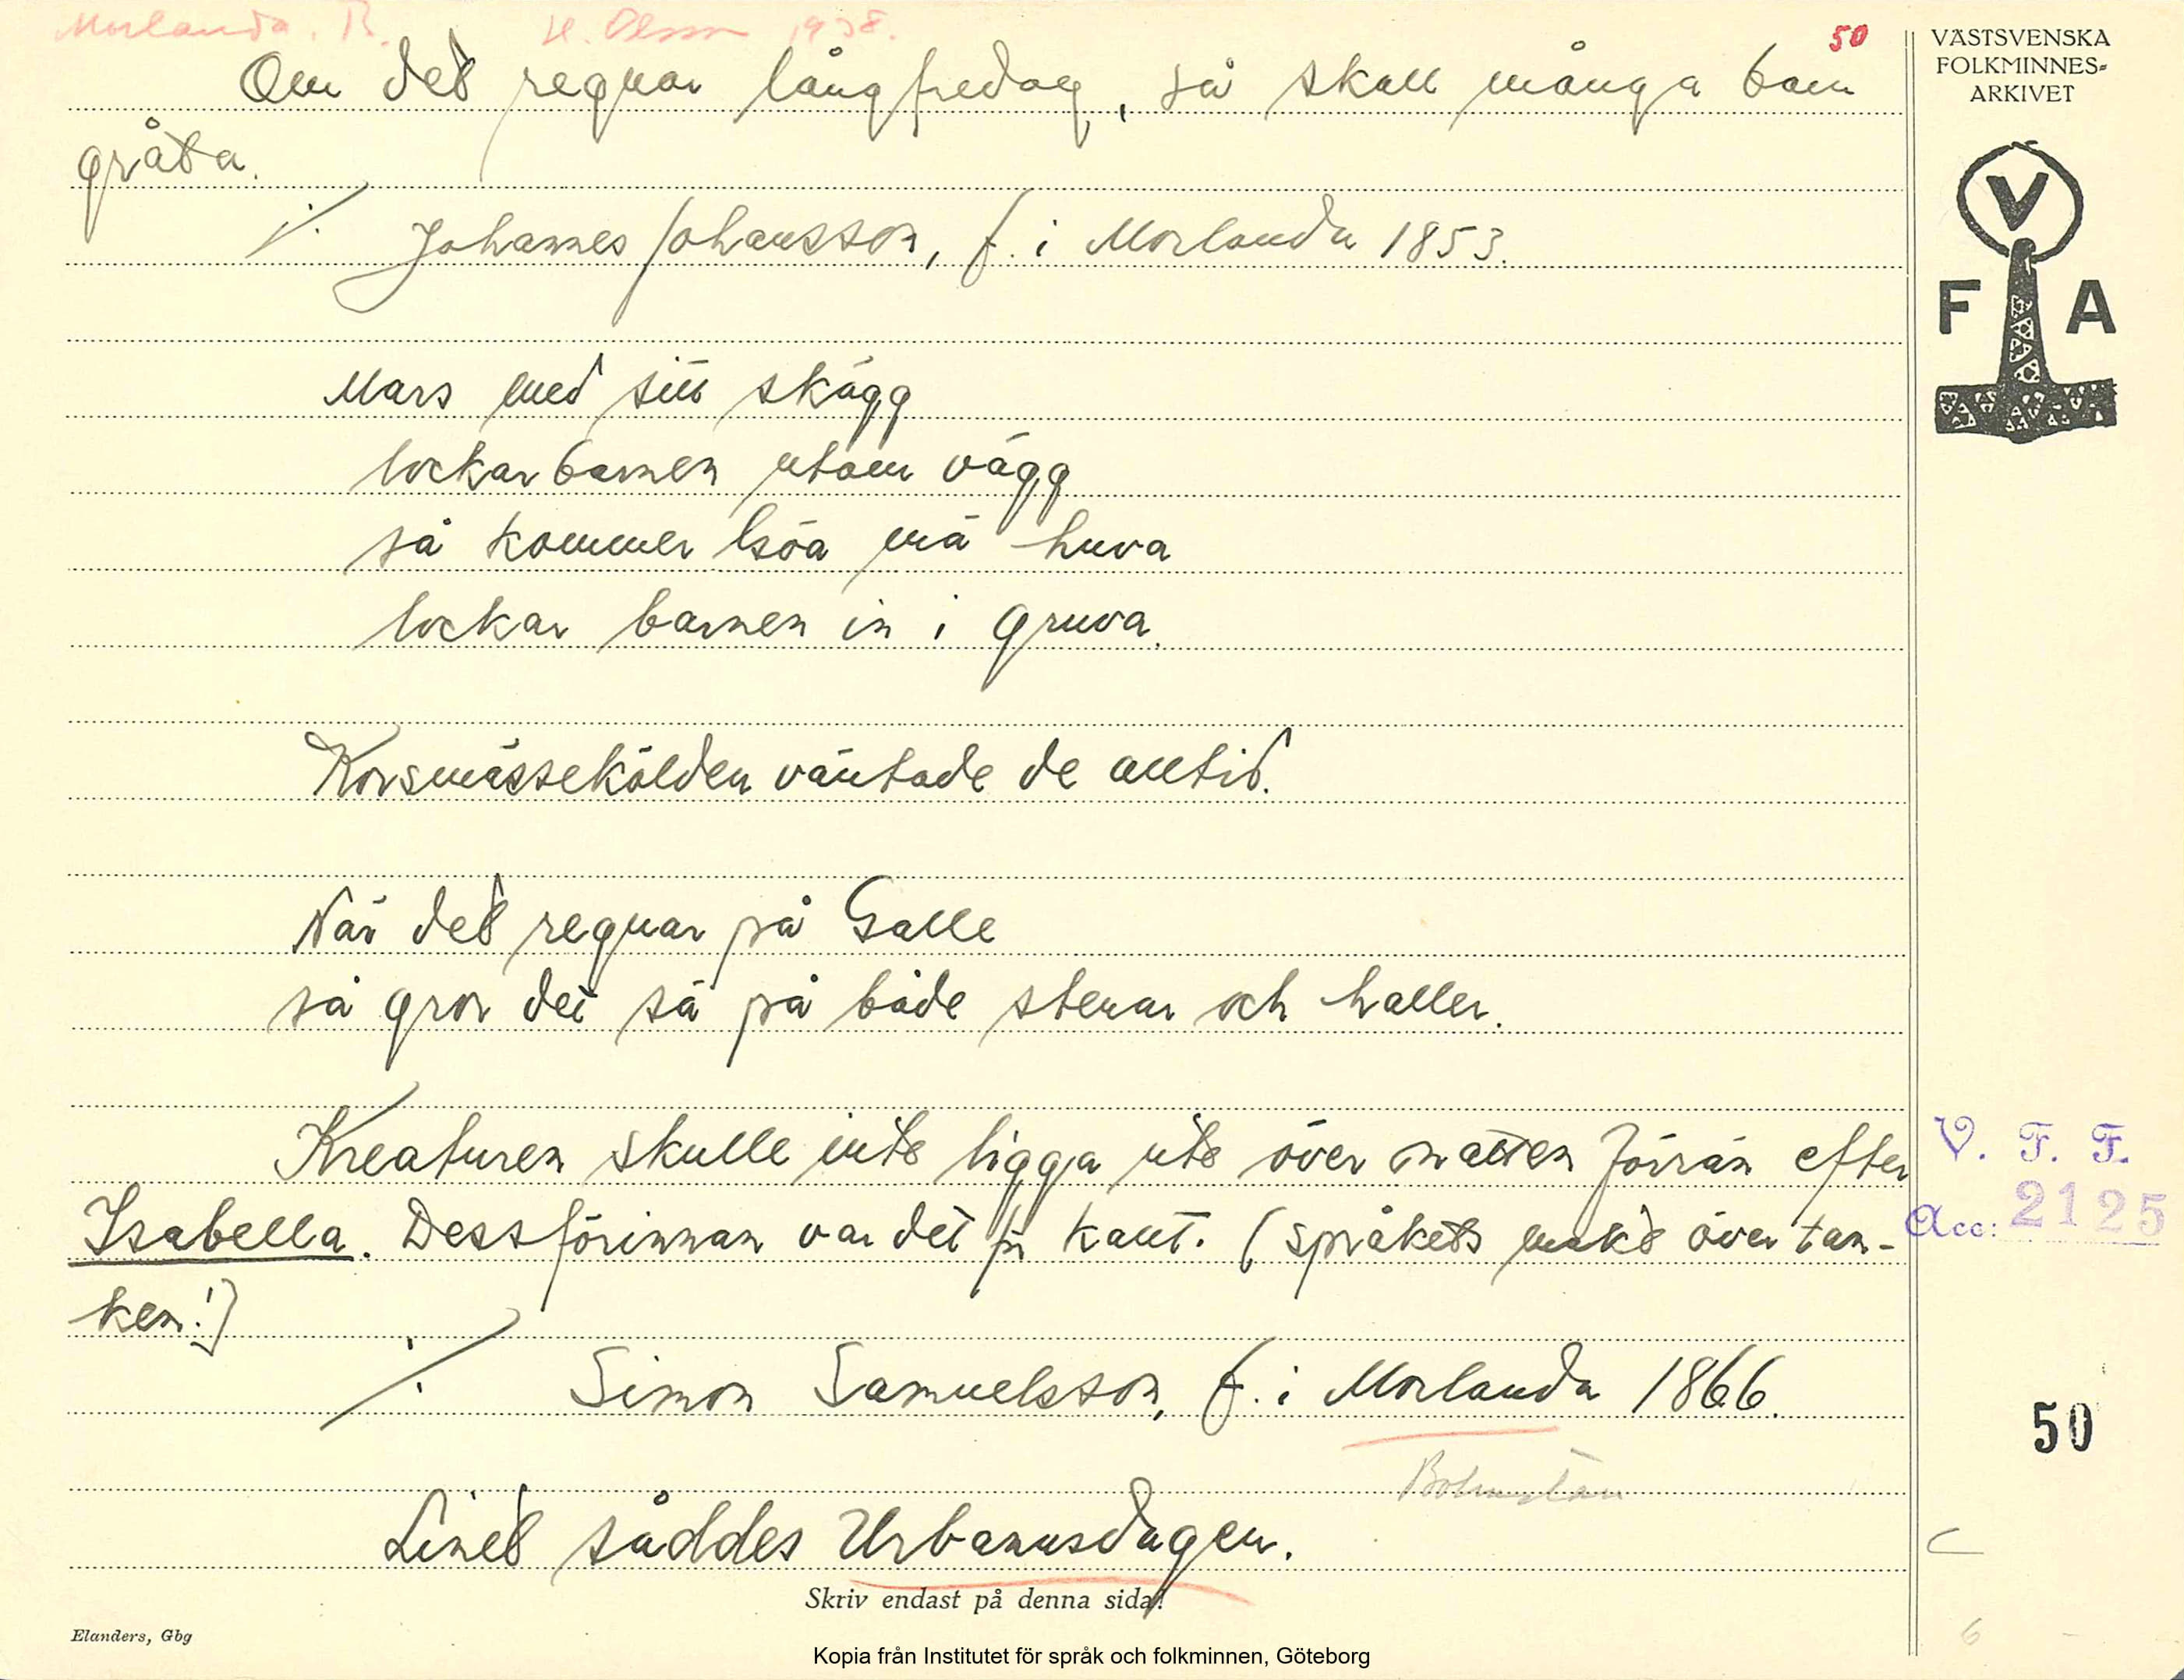 Morlanda. B. H. Olsson 1938.
50
Om det regnar långfredag, så skall många barn
gråta.
Johannes Johansson, f. i Morlanda 1853.
Mars med sitt skägg
lockar barnen utom vägg
så kommer Isöa mä huva
lockar barnen in i gruva.
Korsmässekölden väntade de alltid.
När det regnar på Galle
så gror det så på både stenar och haller.
Kreaturen skulle inte ligga ute över natten förrän efter
Isabella. Dessförinnan var det för kallt. (språkets makt över tan-
ken!)
Simon Samuelsson, f. i Morlanda 1866.
Bohuslän
Linet såddes Urbanusdagen.
Skriv endast på denna sida!
Elanders, Gbg
VÄSTSVENSKA
FOLKMINNES-
ARKIVET
V
F A
V. F. F.
Acc: 2125
50
C
6
Kopia från Institutet för språk och folkminnen, Göteborg